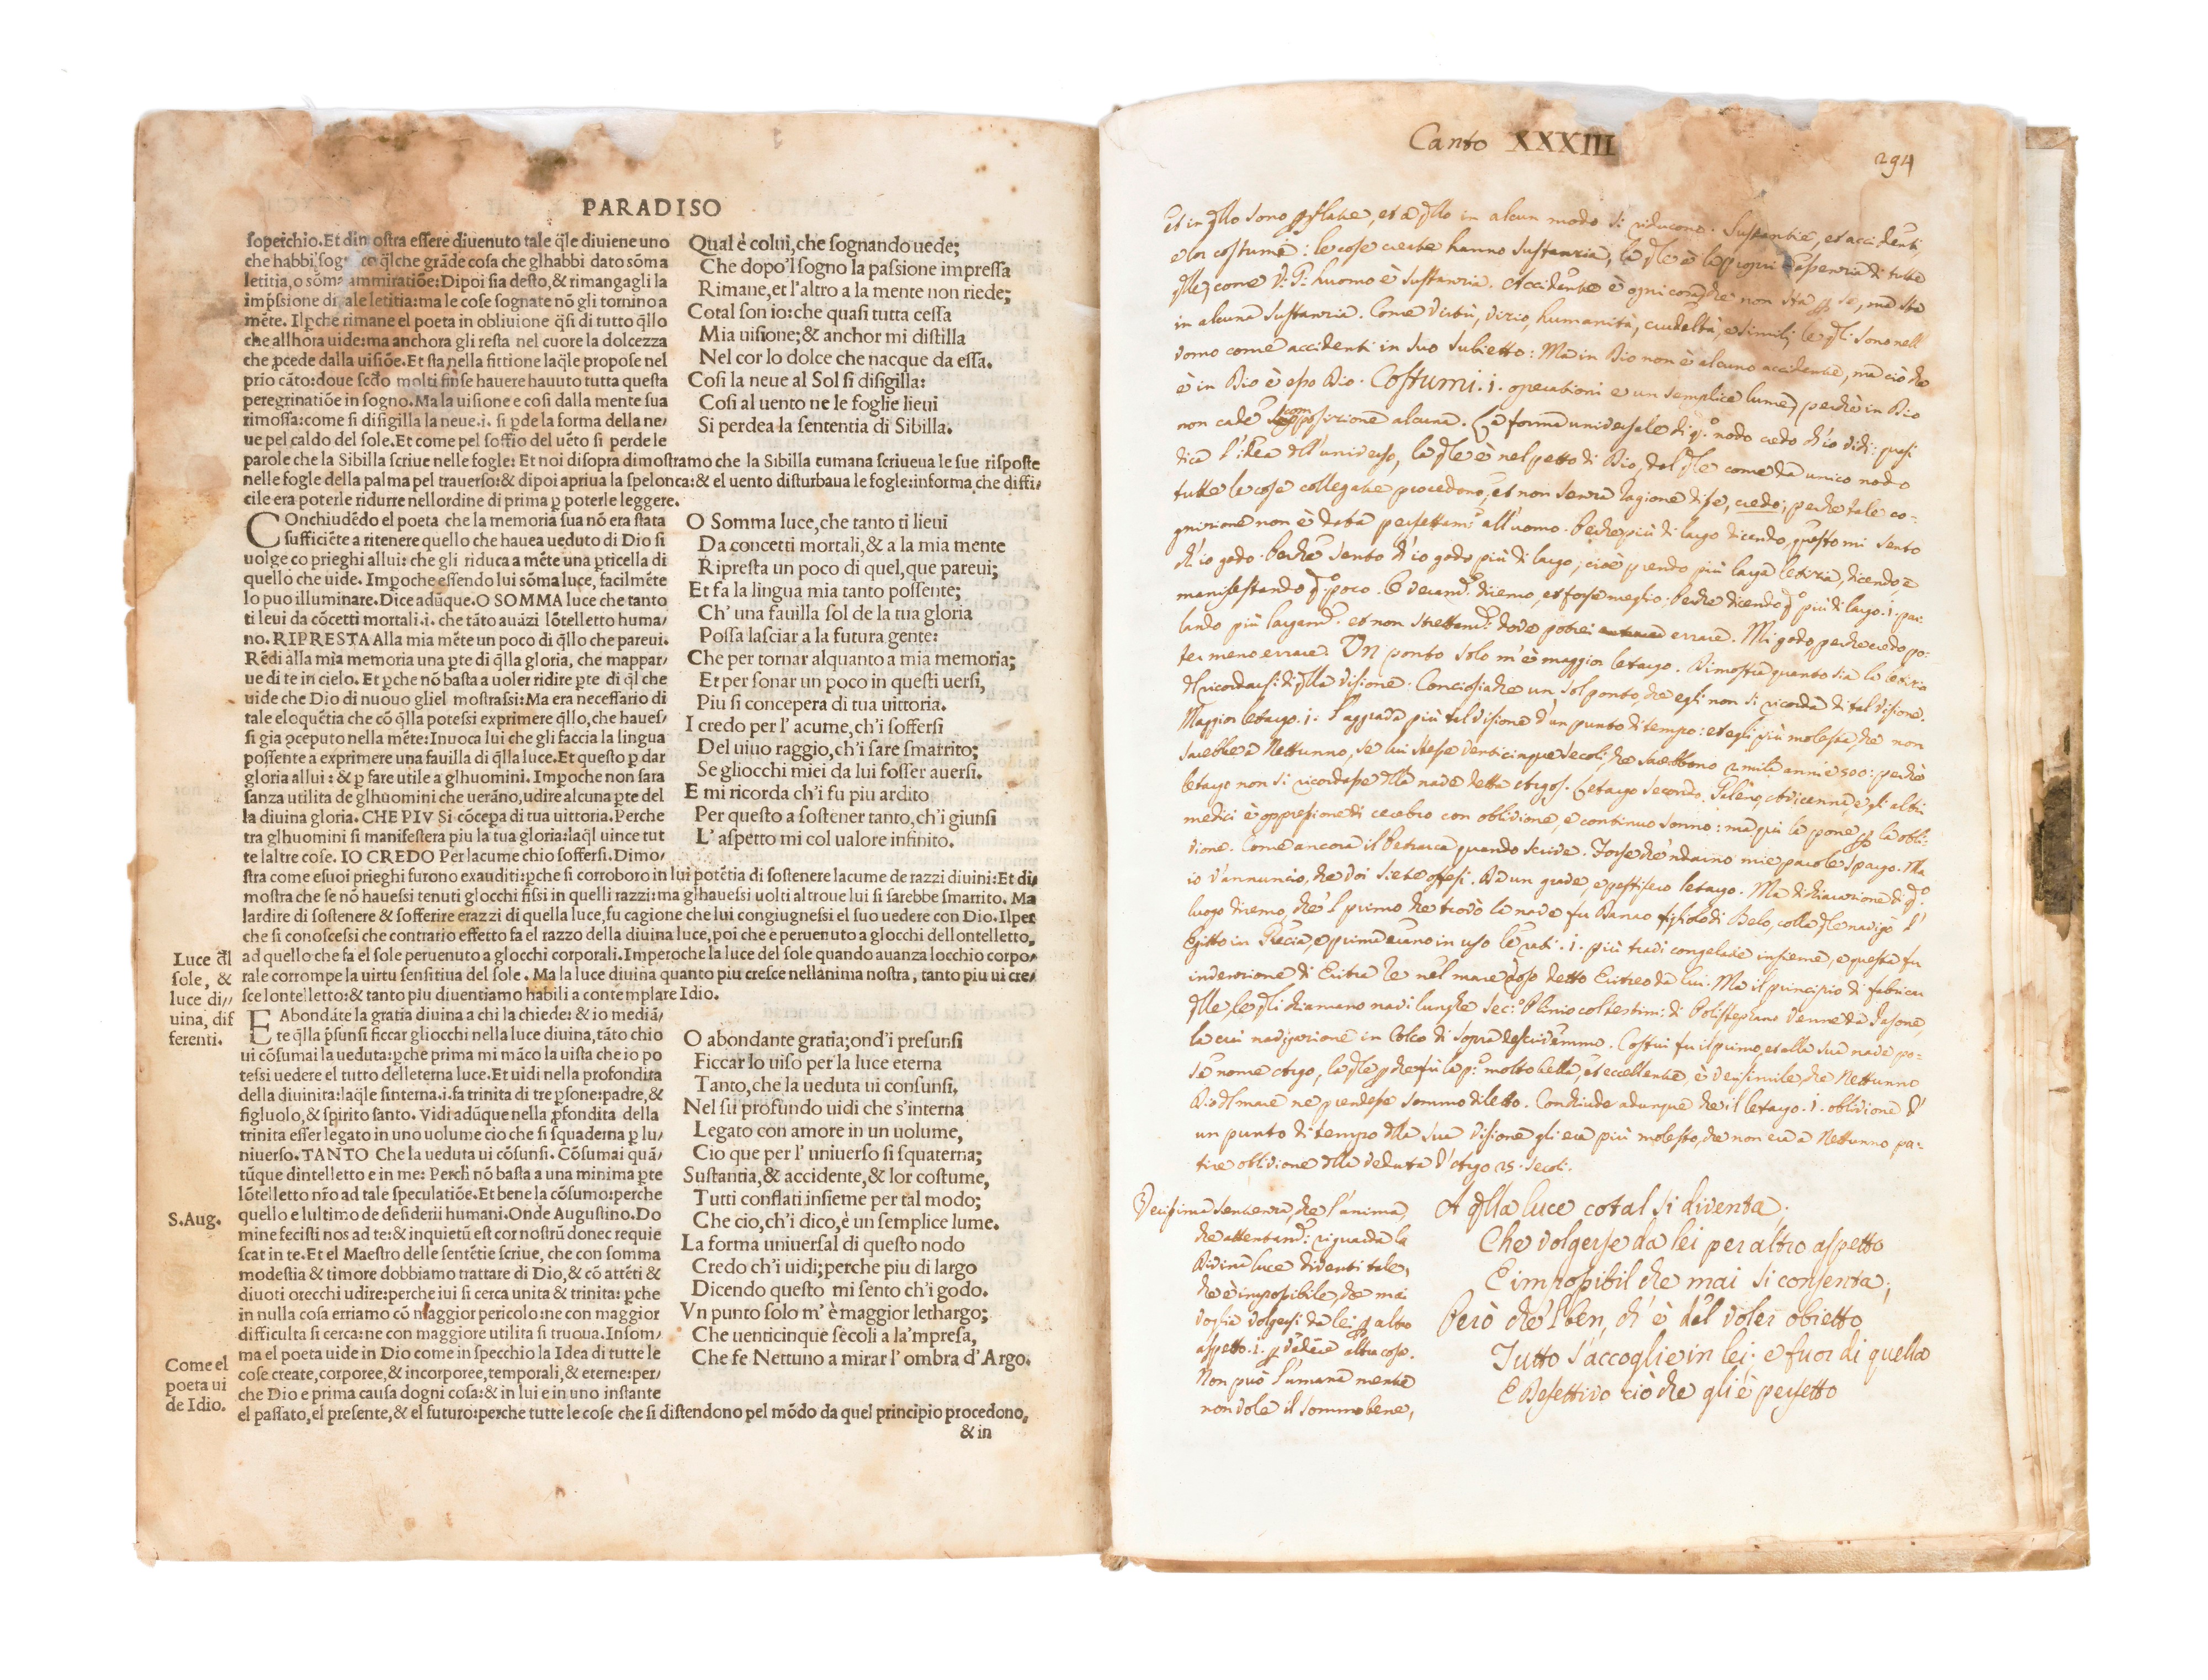 PARADISO
soperchio. Et dimostra essere diuenuto tale q̃le diuiene uno
che habbi sog ce q̃lche grãde cosa che glhabbi dato sõma
letitia, o sõma ammiratiõe: Dipoi sia desto, & rimangagli la
imp̃ssione di tale letitia: ma le cose sognate nõ gli tornino a
mẽte. Il ꝑche rimane el poeta in obliuione q̃si di tutto q̃llo
che allhora uide: ma anchora gli resta nel cuore la dolcezza
che ꝓcede dalla uisiõe. Et sta nella fittione laq̃le propose nel
prio cãto: doue scd̃o molti finse hauere hauuto tutta questa
peregrinatiõe in sogno. Ma la uisione e cosi dalla mente sua
rimossa: come si disigilla la neue .i. si ꝑde la forma della ne/
ue pel caldo del sole. Et come pel soffio del uẽto si perde le
parole che la Sibilla scriue nelle fogle: Et noi disopra dimostramo che la Sibilla cumana scriueua le sue risposte
nelle fogle della palma pel trauerso: & dipoi apriua la spelonca: & el uento disturbaua le fogle: informa che diffi/
cile era poterle ridurre nellordine di prima ꝑ poterle leggere.
Qual è colui, che sognando uede;
Che dopo'l sogno la passione impressa
Rimane, et l'altro a la mente non riede;
Cotal son io: che quasi tutta cessa
Mia uisione; & anchor mi distilla
Nel cor lo dolce che nacque da essa.
Cosi la neue al Sol si disigilla:
Cosi al uento ne le foglie lieui
Si perdea la sententia di Sibilla.
COnchiudẽdo el poeta che la memoria sua nõ era stata
sufficiẽte a ritenere quello che hauea ueduto di Dio si
uolge co prieghi allui: che gli riduca a mẽte una ꝑticella di
quello che uide. Imꝑoche essendo lui sõma luce, facilmẽte
lo puo illuminare. Dice adũque. O SOMMA luce che tanto
ti leui da cõcetti mortali .i. che tãto auãzi lõtelletto huma/
no. RIPRESTA Alla mia mẽte un poco di q̃llo che pareui.
Rẽdi alla mia memoria una ꝑte di q̃lla gloria, che mappar/
ue di te in cielo. Et ꝑche nõ basta a uoler ridire ꝑte di q̃l che
uide che Dio di nuouo gliel mostrassi: Ma era necessario di
tale eloquẽtia che cõ q̃lla potessi exprimere q̃llo, che haues/
si gia ꝑceputo nella mẽte: Inuoca lui che gli faccia la lingua
possente a exprimere una fauilla di q̃lla luce. Et questo ꝑ dar
gloria allui: & ꝑ fare utile a glhuomini. Imꝑoche non sara
sanza utilita de glhuomini che uerãno, udire alcuna ꝑte del
la diuina gloria. CHE PIV Si cõceꝑa di tua uittoria. Perche
tra glhuomini si manifestera piu la tua gloria: laq̃l uince tut
te laltre cose. IO CREDO Per lacume chio soffersi. Dimo/
stra come esuoi prieghi furono exauditi: ꝑche si corroboro in lui potẽtia di sostenere lacume de razzi diuini: Et di/
mostra che se nõ hauessi tenuti glocchi fissi in quelli razzi: ma glhauessi uolti altroue lui si sarebbe smarrito. Ma
lardire di sostenere & sofferire erazzi di quella luce, fu cagione che lui congiugnessi el suo uedere con Dio. Ilper
che si conoscessi che contrario effetto fa el razzo della diuina luce, poi che e peruenuto a glocchi dellontelletto,
ad quello che fa el sole peruenuto a glocchi corporali. Imperoche la luce del sole quando auanza locchio corpo/
rale corrompe la uirtu sensitiua del sole. Ma la luce diuina quanto piu cresce nellanima nostra, tanto piu ui cre/
sce lontelletto: & tanto piu diuentiamo habili a contemplare Idio.
Luce d̃l
sole, &
luce di//
uina, dif
ferenti.
O Somma luce, che tanto ti lieui
Da concetti mortali, & a la mia mente
Ripresta un poco di quel, que pareui;
Et fa la lingua mia tanto possente;
Ch' una fauilla sol de la tua gloria
Possa lasciar a la futura gente:
Che per tornar alquanto a mia memoria;
Et per sonar un poco in questi uersi,
Piu si concepera di tua uittoria.
I credo per l' acume, ch'i soffersi
Del uiuo raggio, ch'i sare smarrito;
Se gliocchi miei da lui fosser auersi.
E mi ricorda ch'i fu piu ardito
Per questo a sostener tanto, ch'i giunsi
L' aspetto mi col ualore infinito.
E Abondãte la gratia diuina a chi la chiede: & io mediã/
te q̃lla p̃sunsi ficcar gliocchi nella luce diuina, tãto chio
ui cõsumai la ueduta: ꝑche prima mi mãco la uista che io po
tessi uedere el tutto delleterna luce. Et uidi nella profondita
della diuinita: laq̃le sinterna .i. fa trinita di tre ꝑsone: padre, &
figluolo, & spirito santo. Vidi adũque nella ꝓfondita della
trinita esser legato in uno uolume cio che si squaderna ꝑ lu/
niuerso. TANTO Che la ueduta ui cõsunsi. Cõsumai quã/
tũque dintelletto e in me: Perch nõ basta a una minima ꝑte
lõtelletto nr̃o ad tale speculatiõe. Et bene la cõsumo: perche
quello e lultimo de desiderii humani. Onde Augustino. Do
mine fecisti nos ad te: & inquietũ est cor nostrũ donec requie
scat in te. Et el Maestro delle sentẽtie scriue, che con somma
modestia & timore dobbiamo trattare di Dio, & cõ attẽti &
diuoti orecchi udire: perche iui si cerca unita & trinita: ꝑche
in nulla cosa erriamo cõ maggior pericolo: ne con maggior
difficulta si cerca: ne con maggiore utilita si truoua. Insom/
ma el poeta uide in Dio come in specchio la Idea di tutte le
cose create, corporee, & incorporee, temporali, & eterne: per/
che Dio e prima causa dogni cosa: & in lui e in uno instante
el passato, el presente, & el futuro: perche tutte le cose che si distendono pel mõdo da quel principio procedono,
S. Aug.
Come el
poeta ui
de Idio.
O abondante gratia; ond'i presunsi
Ficcar lo uiso per la luce eterna
Tanto, che la ueduta ui consunsi.
Nel su profundo uidi che s'interna
Legato con amore in un uolume,
Cio que per l' uniuerso si squaterna;
Sustantia, & accidente, & lor costume,
Tutti conflati insieme per tal modo;
Che cio, ch'i dico, è un semplice lume.
La forma uniuersal di questo nodo
Credo ch'i uidi; perche piu di largo
Dicendo questo mi sento ch'i godo.
Vn punto solo m' è maggior lethargo;
Che uenticinque secoli a la'mpresa,
Che fe Nettuno a mirar l' ombra d' Argo.
& in
Canto XXXIII
294
Et in q̃llo sono, et a q̃llo in alcun modo si riducono. Sustantie, et accidenti,
e lor costume: le cose create hanno sustanzia, la q̃le è la propri essenzia di tutte
q̃lle, come huomo è sustanzia. Accidente è ogni cosa, che non stà ꝑ se, ma sta
in alcuna sustanzia. Come virtù, vizio, humanità, crudeltà, e simili, le q̃li sono nell'
uomo come accidenti in suo subietto: Ma in Dio non è alcuno accidente, ma ciò che
è in Dio è esso Dio. Costumi .i. operationi e un semplice lume, perchè in Dio
non cade composizione alcuna. La forma universale di q.o nodo credo ch'io vidi: quasi
dica l'idea dell'universo, la q̃le è nel petto di Dio, dal q̃le come da unico nodo
tutte le cose collegate procedono, et non senza ragione disse, credo; perche tale co=
gnizione non è data perfettam.te all'uomo. Perche più di largo dicendo, questo mi sento
ch'io godo. Perche sento ch'io godo più di largo; cioè prendo più larga letizia, dicendo, e
manifestando q.o poco. O veram.te diremo, et forse meglio: Perche dicendo q.o più di largo .i. par=
lando più largam.te et non strettam.te dove potrei errare. Mi godo, perche credo po=
ter meno errare. Un ponto solo m'è maggior letargo. Dimostra quanto sia la letizia
del ricordarsi di q̃lla visione: Conciosiache un sol ponto, che egli non si ricorda di tal visione.
Maggior letargo .i. l'aggrada più tal visione d'un punto di tempo: et egli più molesta, che non
sarebbe a Nettunno, se lui stesse venticinque secoli, che sarebbono 2 mila anni e 500: perchè
letargo non si ricordasse della nave detta Argos. Letargo secondo Galeno, Avicenna, e gli altri
medici è oppressione di cerebro con oblivione, e continuo sonno: ma qui la pone ꝑ la obli=
vione. Come ancora il Petrarca quando scrive. Forse che'ndarno mie parole spargo. Ma
io v'annuncio, che voi siete offesi. Da un grave, e pestifero letargo. Ma dichiarazione di q.o
luogo diremo, che'l primo che trovò la nave fu Danao figliolo di Belo, colla q̃le navigò d'
Egitto in Grecia, e prima erano in uso le rati .i. più tradi congelate insieme, e questa fu
invenzione di Eritra Re nel mare Roso detto Eritreo da lui. Ma il principio di fabricar
q̃lle, le q̃li chiamano navi lunghe sec.o Plinio col testim: di Polistepano venne da Jasone,
la cui navigazione in Colco di sopra descrivemmo. Costui fu il primo, et alla sua nave po=
se nome Argo, la q̃le ꝑche fu la p.a molto bella, et eccellente, è verisimile, che Nettunno
Dio del mare ne prendesse sommo diletto. Conchiude adunque che il letargo .i. oblivione d'
un punto di tempo della sua visione gli era più molesto, che non era a Nettunno pa=
tire oblivione della veduta d'Argo 25. secoli.
Verissima sentenza, che l'anima,
che attentam.te riguarda la
Divina luce diventi tale,
che è impossibile, che mai
voglia volgersi da lei ꝑ altro
aspetto .i. ꝑ vedere altra cosa.
Non può l'umana mente
non vole il sommo bene,
A q̃lla luce cotal si diventa;
Che volgerse da lei per altro aspetto
E impossibil che mai si consenta;
Però che'l ben, ch' è del voler obietto
Tutto s'accoglie in lei; e fuor di quella
E Defettivo ciò che gli è perfetto